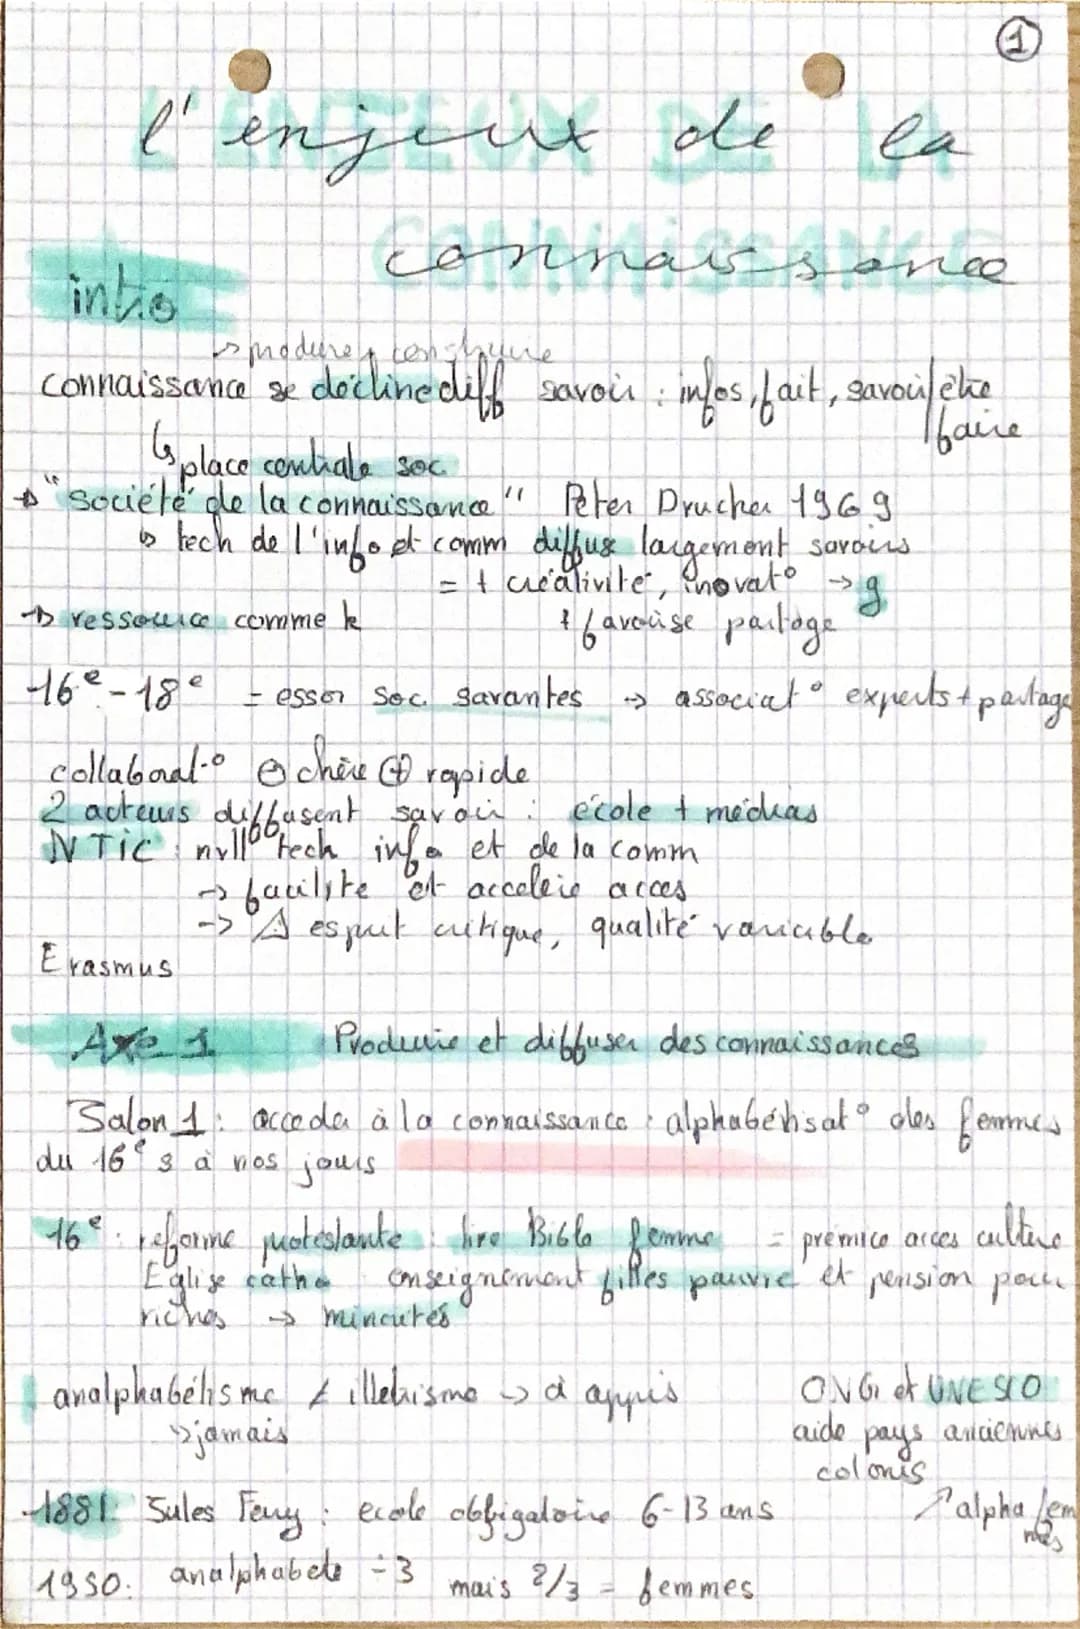 1
l'enjeux de la
connaissance
intro
→ produire, construire
connaissance se décline diff savoir : infos, fait, savoir/être
/faire
↳ place centrale soc
→ "société de la connaissance" Peter Drucher 1969
↳ tech de l'info et comm diffuse largement savoirs
= + créativité, inovat° → g
→ ressource comme k + favorise partage
16e-18e = essor soc. savantes → associat° experts + partage
collaborat° ⊖ chère ⊕ rapide
2 acteurs diffusent savoir : école + médias
NTIC : nvll tech info et de la comm
→ facilite et accelere acces
→ ⚠ esprit critique, qualité variable
Erasmus
Axe 1 Produire et diffuser des connaissances
Jalon 1 : acceder à la connaissance : alphabétisat° des femmes
du 16e s à nos jours
16e : reforme protestante : lire Bible femme = premice acces culture
Eglise catho enseignement filles pauvre et pension pour
riches → minorités
analphabétisme ≠ illetrisme → à appris
↳ jamais
ONG et UNESCO
aide pays anciennes
colonis
↗ alpha fem
mes
1881 : Jules Ferry : ecole obligatoire 6-13 ans
1950 : analphabete ÷3 mais 2/3 = femmes